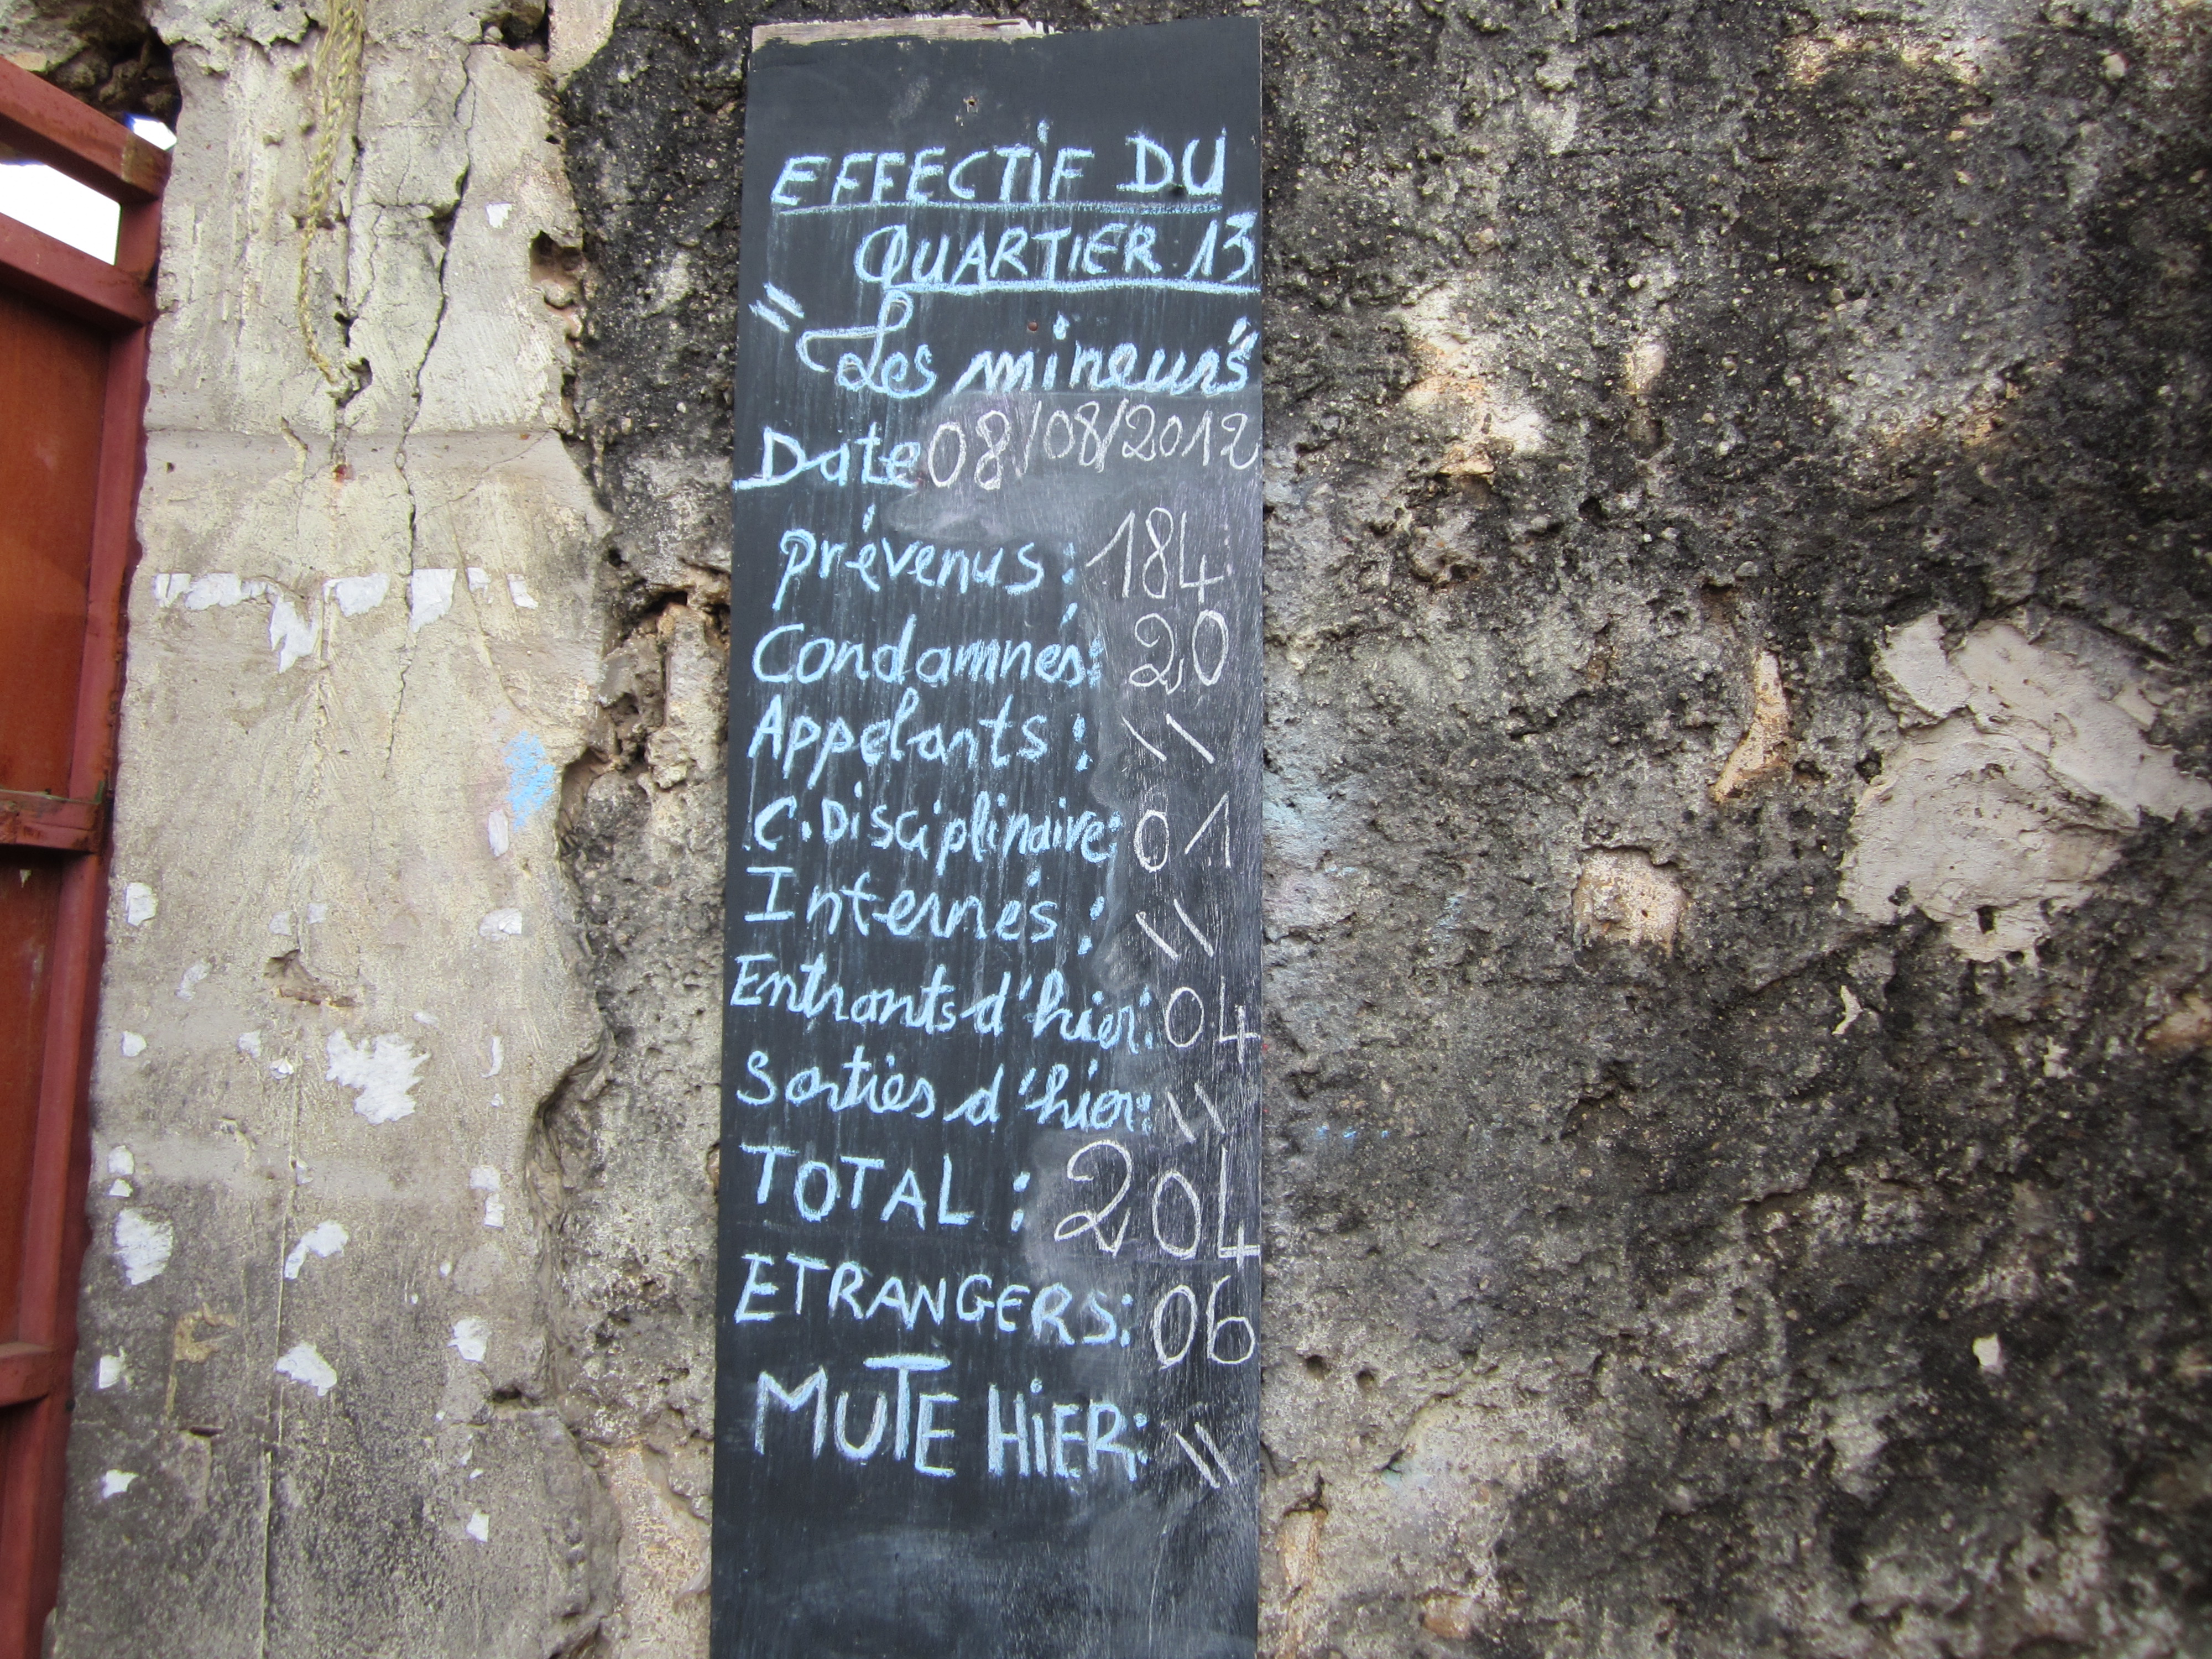 EFFECTIF DU
QUARTIER 13
"Les mineurs"
Date 08/08/2012
prévenus : 184
Condamnés: 20
Appelants : \\
C. Disciplinaire: 01
Internés : \\
Entrants d'hier: 04
Sorties d'hier: \\
TOTAL : 204
ETRANGERS: 06
MUTE HiER: \\